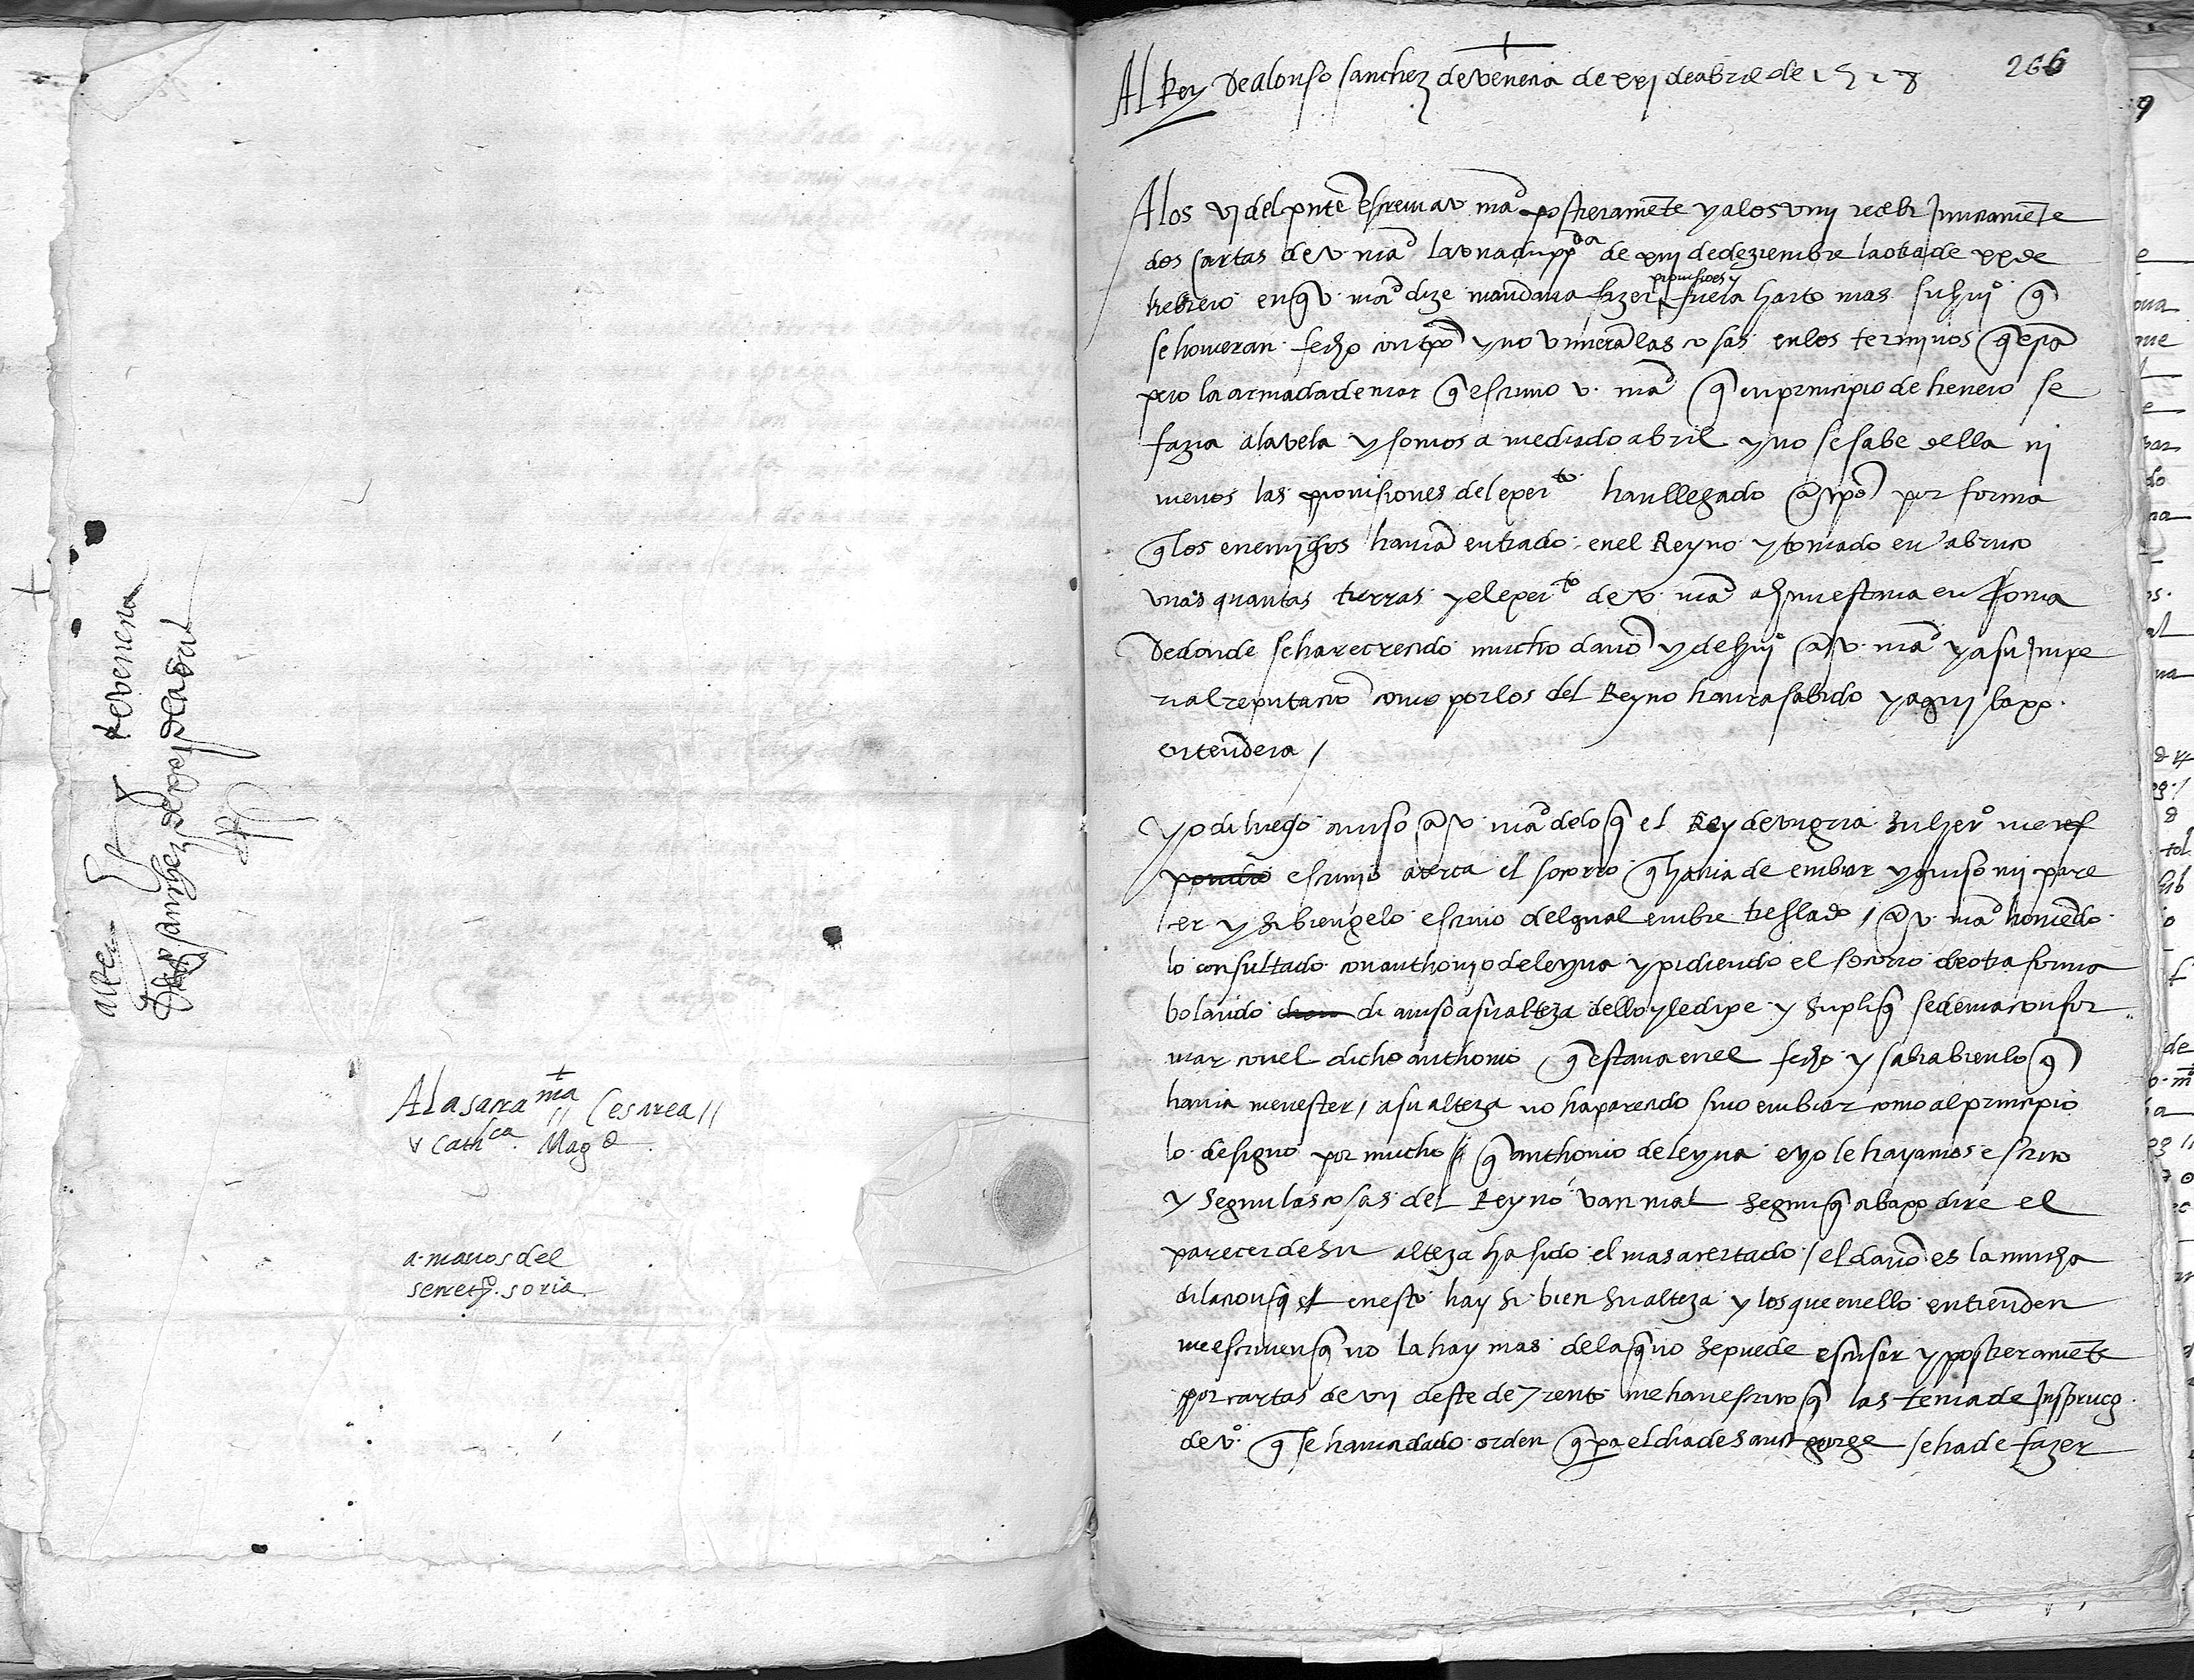 de venecia
Al.º sanchez de xxj de abril
A la sacra // cesarea //
y cath.ca Mag.d
ma
a manos del
secret.º soria
266
Al Rey De alonso sanchez de venecia de xxj de abril de 1528
A los vj del pnte escreui a v. mad postreramente y a los viij recebi Juntamente
dos cartas de v. mad la vna dupp.da de xiiij de dezienbre la otra de xx de
hebrero en q v. mad dize mandaua fazer prouisiones y fuera harto mas su serui.º q
se houieran fecho con tpo y no vinieran las cosas en los terminos q estan
pero la armada de mar q escriuio v. mad q en principio de henero se
fazia a la vela y somos a mediado abril y no se sabe della nj
menos las prouisiones del exer.to han llegado a tpo por forma
q los enemigos hauian entrado en el Reyno y tomado en abruço
vnas quantas tierras y el exer.to de v. mad ahun estaua en Roma
De donde se ha recrecido mucho daño y deserui.º a v. mad y a su Jmpe
rial reputacio como por los del Reyno haura sabido y aquj baxo
entendera /
Yo di luego auiso a v. mad de lo q el Rey de vngria su her.º me res
pondio escriujo acerca el socorro q hauia de embiar y quiso mi pare
cer y si bien gelo escriuio del qual embie treslado / a v. mad hauiendo
lo consultado con anthonyo de leyua y pidiendo el socorro de otra forma
bolando di auiso a su alteza dello y le dixe y supliq se deuia confor
mar con el dicho anthonio q estaua en el fecho y sabia bien lo q
hauia menester / a su alteza no ha parecido sino embiar como al principio
lo designo por mucho q anthonio de leyua e yo le hayamos escrito
y segun las cosas del Reyno van mal segun q abaxo dire el
parecer de su alteza ha sido el mas acertado / el daño es la mucha
dilacion q en esto hay si bien su alteza y los que en ello entienden
me escriuen q no la hay mas de la q no se puede escusar y postreramente
por cartas de vij deste de Trento me han escrito q las tenia de Jnspruch
de v.º q se hauia dado orden q pa el dia de sant gorge se ha de fazer